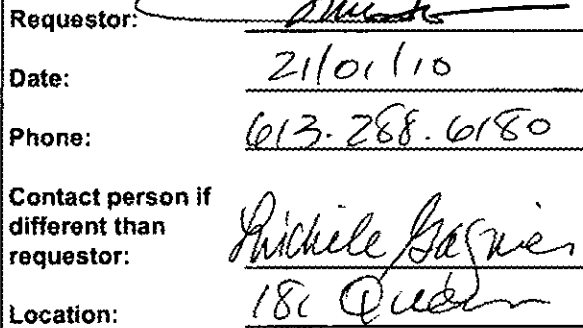 Requestor:
Date: 21/01/10
Phone: 613.288.6180
Contact person if
different than
requestor: Michele Gagnier
Location: 181 Queen